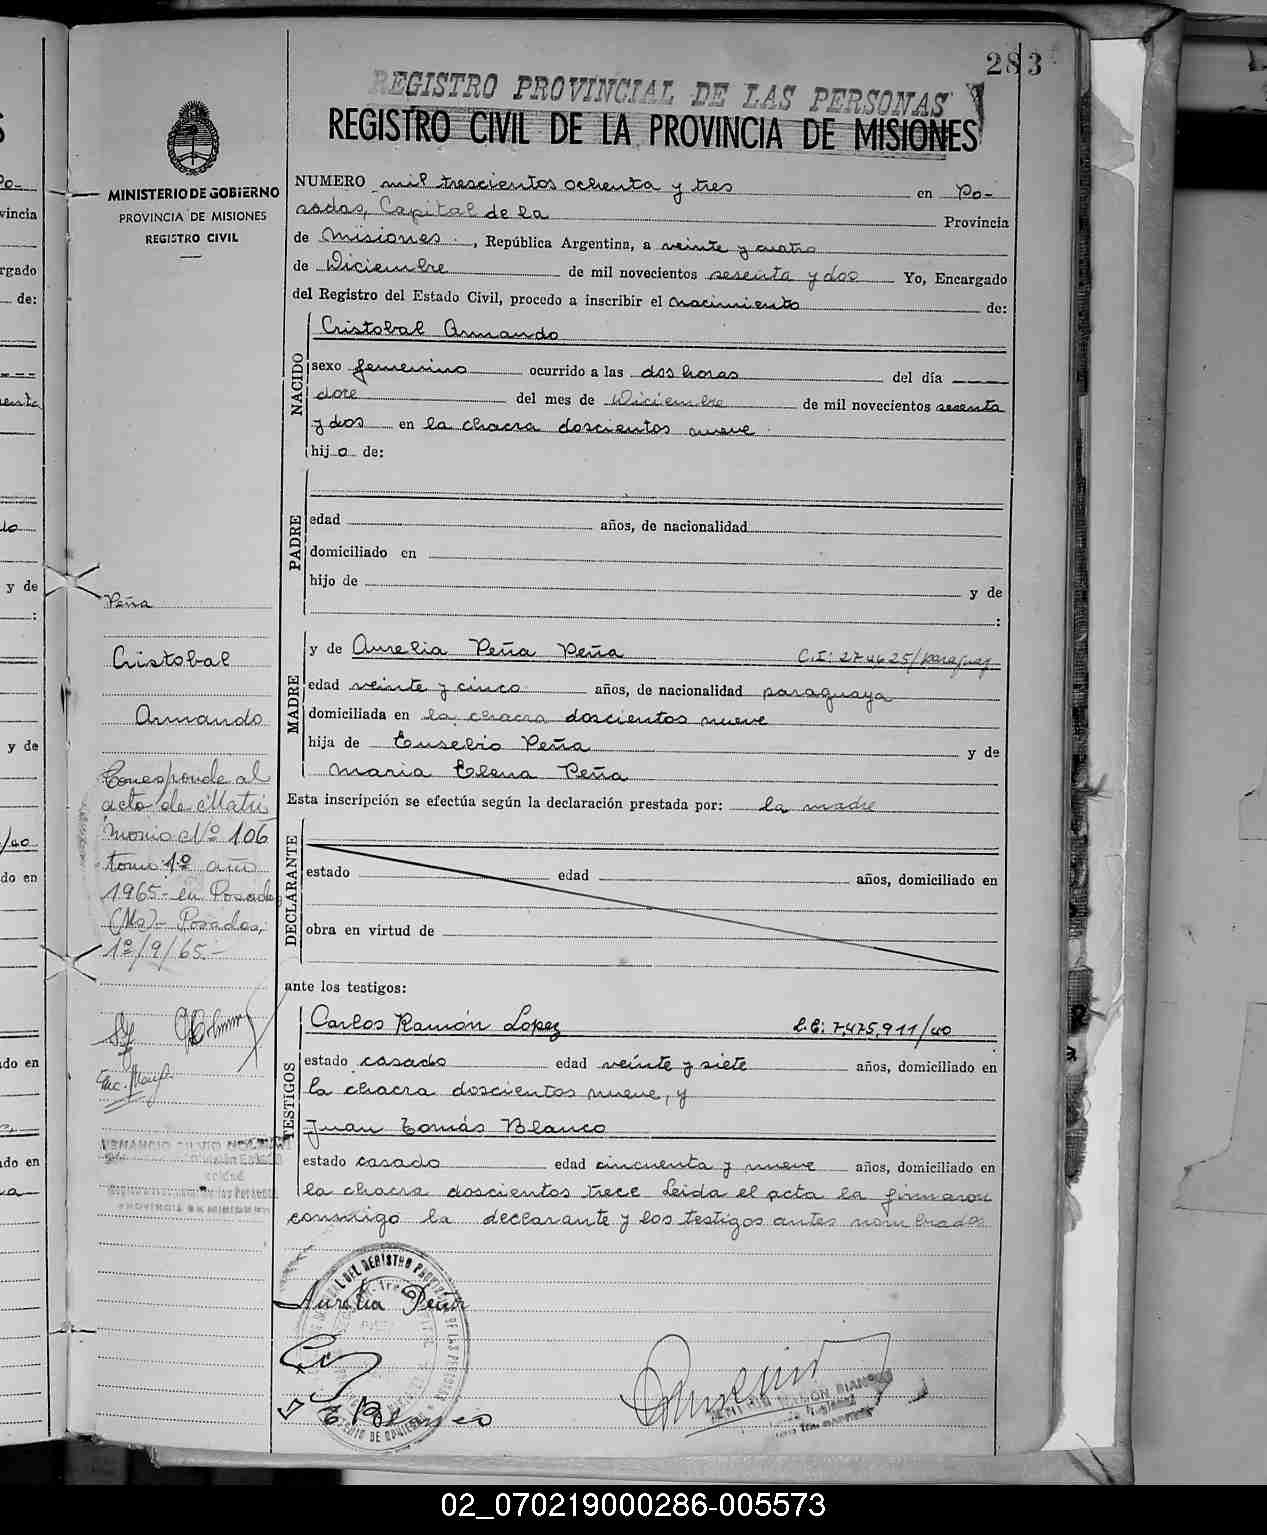 283
REGISTRO PROVINCIAL DE LAS PERSONAS
REGISTRO CIVIL DE LA PROVINCIA DE MISIONES
MINISTERIO DE GOBIERNO
PROVINCIA DE MISIONES
REGISTRO CIVIL
NUMERO mil trescientos ochenta y tres en Po-
sadas, Capital de la Provincia
de Misiones, República Argentina, a veinte y cuatro
de Diciembre de mil novecientos sesenta y dos Yo, Encargado
del Registro del Estado Civil, procedo a inscribir el nacimiento de:
NACIDO
Cristobal Armando
sexo femenino ocurrido a las dos horas del día ----
doce del mes de Diciembre de mil novecientos sesenta
y dos en la chacra doscientos nueve
hij o de:
PADRE
edad años, de nacionalidad
domiciliado en
hijo de y de
:
MADRE
y de Aurelia Peña Peña C.I: 274625/paraguay
edad veinte y cinco años, de nacionalidad paraguaya
domiciliada en la chacra doscientos nueve
hija de Eusebio Peña y de
Maria Elena Peña
Esta inscripción se efectúa según la declaración prestada por: la madre
DECLARANTE
estado edad años, domiciliado en
obra en virtud de
ante los testigos:
TESTIGOS
Carlos Ramón Lopez L.E: 7,475,911/40
estado casado edad veinte y siete años, domiciliado en
la chacra doscientos nueve, y
Juan Tomás Blanco
estado casado edad cincuenta y nueve años, domiciliado en
la chacra doscientos trece Leida el acta la firmaron
conmigo la declarante y los testigos antes nombrados
Aurelia Peña
Blanco
Peña
Cristobal
Armando
Corresponde al
acto de Matri
monio Nº 106
tomo 1º año
1965- en Posadas
(Ms)- Posadas,
1º/9/65-
02_070219000286-005573